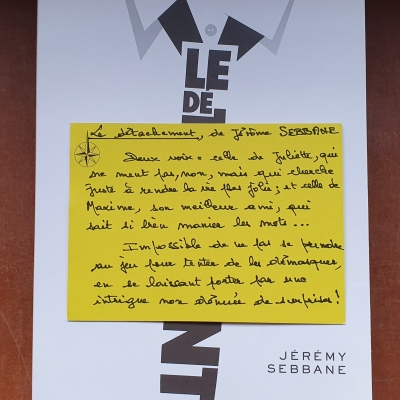 LE
DE
Le détachement, de Jérôme SEBBANE
Deux voix : celle de Juliette, qui
ne ment pas, non, mais qui cherche
juste à rendre la vie plus jolie ; et celle de
Maxime, son meilleur ami, qui
sait si bien manier les mots...
Impossible de ne pas se prendre
au jeu pour tenter de les démasquer,
en se laissant porter par une
intrigue non dénuée de surprises !
NT
JÉRÉMY
SEBBANE